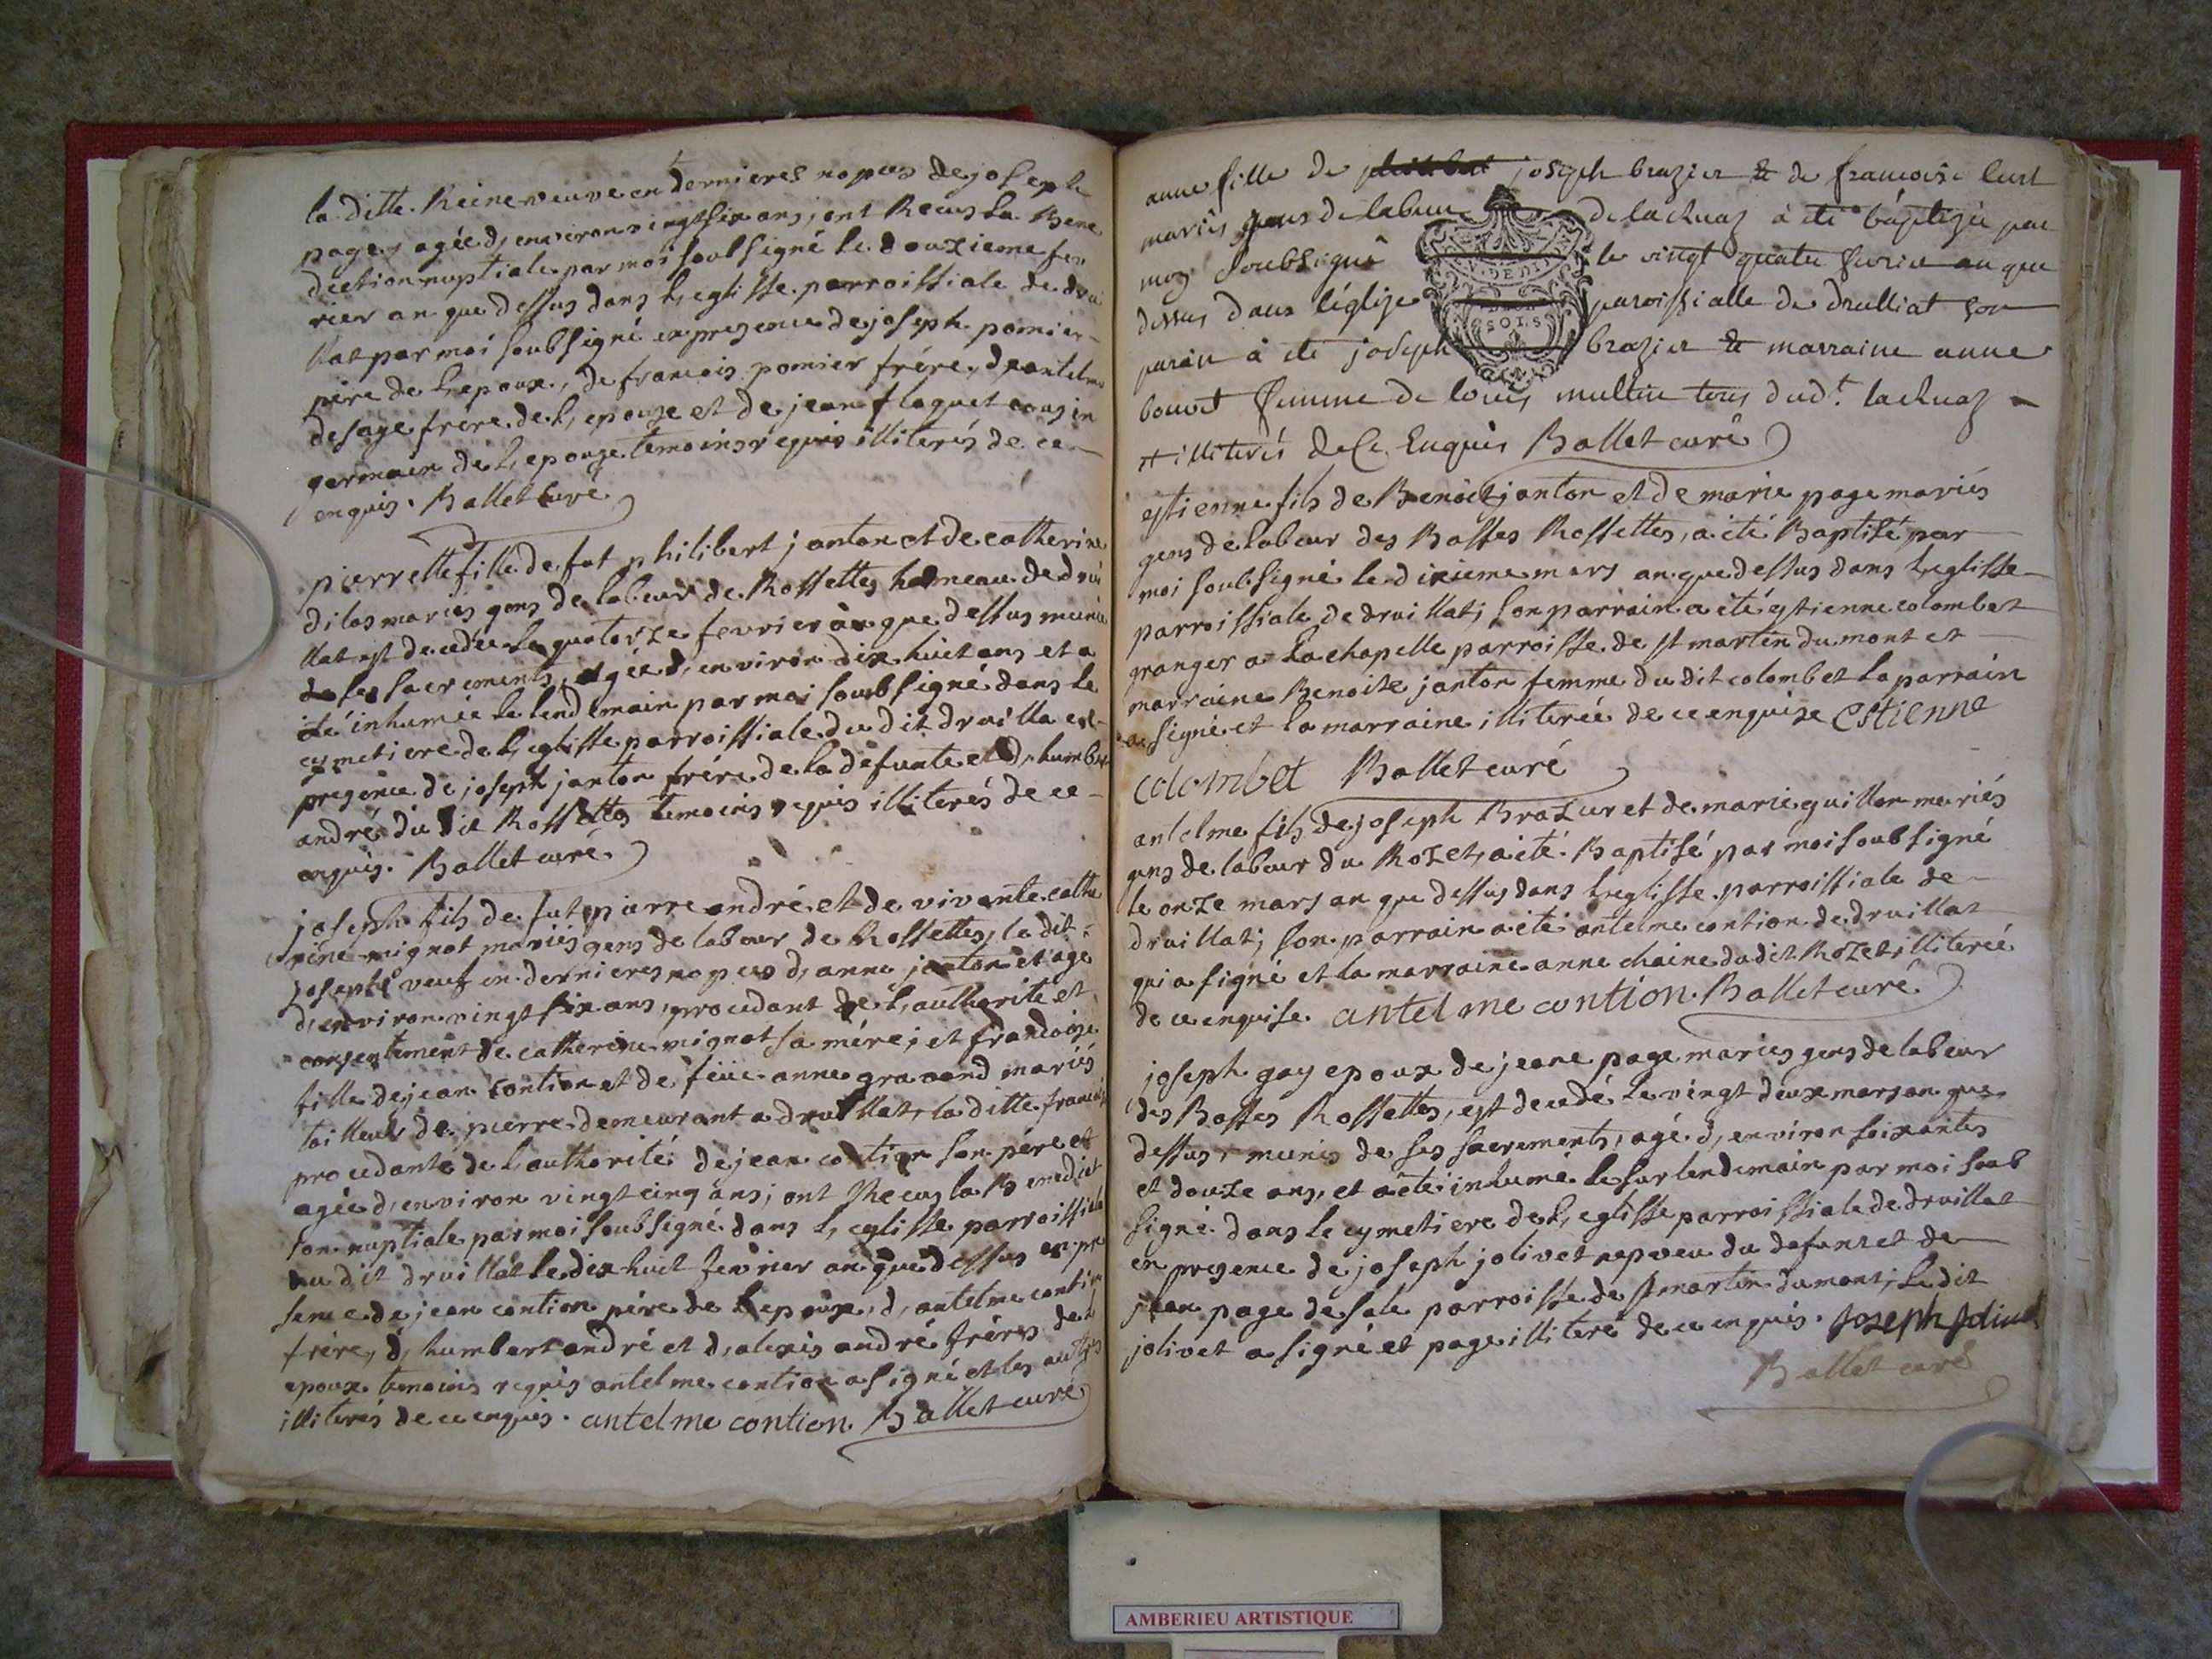 la ditte Reine veuve en dernieres nopces de joseph
page, agée d, environ vingt six ans, ont Recus la Bene
diction nuptiale par moi soubsigné le douzieme fev
rier an que dessus dans l, eglisse parroissiale de drui
llat par moi soubsigné en presence de joseph pomier
pére de l, epoux, de francois pomier frére, d, antelme
desage frere de l, epouze et de jean flaquet cousin
germain de l, epouze temoins requis illiterés de ce
enquis. Ballet curé
pierrette fille de fut philibert janton et de catherine
dilas mariés gens de labeur de Rossettes hameau de drui
llat est decedée le quatorze fevrier an que dessus munie
de ses sacrements, agée d, environ dix huit ans et a
été inhumée le lendemain par moi soubsigné dans le
cymetiere de l, eglisse parroissiale du dit druilla en
presence de joseph janton frére de la defunte et d, humbert
andré du dit Rossettes temoins requis illiterés de ce
enquis. Ballet curé
joseph fils de fut pierre andré et de vivante cathe
rine mignot mariés gens de labeur de Rossettes, le dit
joseph veuf en dernieres nopces d, anne janton et agé
d, environ vingt six ans, procedant de l, authorité et
consentement de catherine mignot sa mére; et francoise
fille de jean contion et de feüe anne gravand mariés
tailleur de pierre demeurant a druillat, la ditte francoise
procedante de l, authorité de jean contion son pére et
agée d, environ vingt cinq ans; ont Recus la Benedict
ion nuptiale par moi soubsigné dans l, eglisse parroissiale
du dit druillat le dix huit fevrier an que dessus en pre
sence de jean contion pére de l epouze, d, antelme contion
frére, d, humbert andré et d, alexis andré fréres de l
epoux temoins requis antelme contion a signé et les autres
illiterés de ce enquis. antelme contion. Ballet curé
anne fille de joseph brazier & de francoise
mariés gens de labeur de lachuaz à eté bàptizée par
moy soubsigné le vingt quatre fevrier an que
dessus dans léglize paroissialle de druilliat son
parain à eté joseph brazier & marraine anne
bouvet femme de louis multin tous dud.t lachuaz
et illiterés de ce enquis Ballet curé
GEN. DE DIJ
SOLS
estienne fils de Benoit janton et de marie page mariés
gens de labeur des Basses Rossettes, a été Baptisé par
moi soubsigné le dixieme mars an que dessus dans l, eglisse
parroissiale de druillat; son parrain a été estienne colombet
granger a la chapelle parroisse de st martin du mont et
marraine Benoite janton femme du dit colombet la parrain
a signé et la marraine illiterée de ce enquise Estienne
colombet Ballet curé
antelme fils de joseph Brazier et de marie guillon mariés
gens de labeur du Rozet, a été Baptisé par moi soubsigné
le onze mars an que dessus dans l, eglisse parroissiale de
druillat; son parrain a été antelme contion de druillat
qui a signé et la marraine anne chaine du dit Rozet illiterée
de ce enquise. antelme contion. Ballet curé
joseph gay epoux de jeane page mariés gens de labeur
des Basses Rossettes, est decedé le vingt deux mars an que
dessus, munis de ses sacrements, agé d, environ soixantes
et douze ans, et a été inhumé le surlendemain par moi soub
signé dans le cymetiere de l, eglisse parroissiale de druillat
en presence de joseph jolivet nepveu du defunt et de
jean page de salé parroisse de st martin du mont; le dit
jolivet a signé et page illiteré de ce enquis. Joseph Jolivet
Ballet curé
AMBERIEU ARTISTIQUE